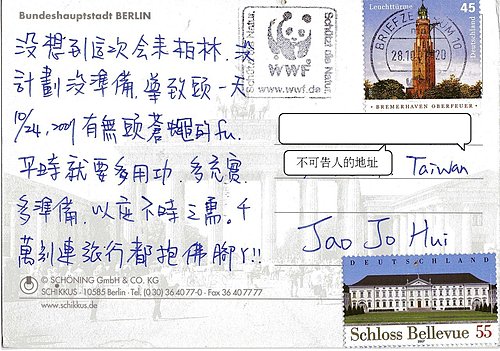 Bundeshauptstadt BERLIN
沒想到這次會來柏林.沒
計劃沒準備.導致頭一天
10/24, 2007有無頭蒼蠅的fu.
平時就要多用功.多充實.
多準備.以應不時之需.千
萬別連旅行都抱佛腳ㄚ!!
© SCHÖNING GmbH & CO. KG
SCHIKKUS · 10585 Berlin · Tel. (0 30) 36 40 77-0 · Fax 36 40 77 77
www.schikkus.de
Schützt die Natur
WWF®
www.wwf.de
Schützt die Natur
Leuchttürme
45
Deutschland
BRIEFZENTRUM 10
28.10.
BREMERHAVEN OBERFEUER
不可告人的地址
Taiwan
Jao Jo Hui
DEUTSCHLAND
Schloss Bellevue 55
2007